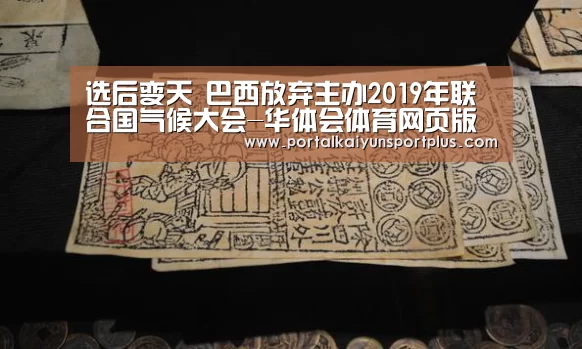 选后变天 巴西放弃主办2019年联
合国气候大会-华体会体育网页版
www.portalkaiyunsportplus.com
除四川外